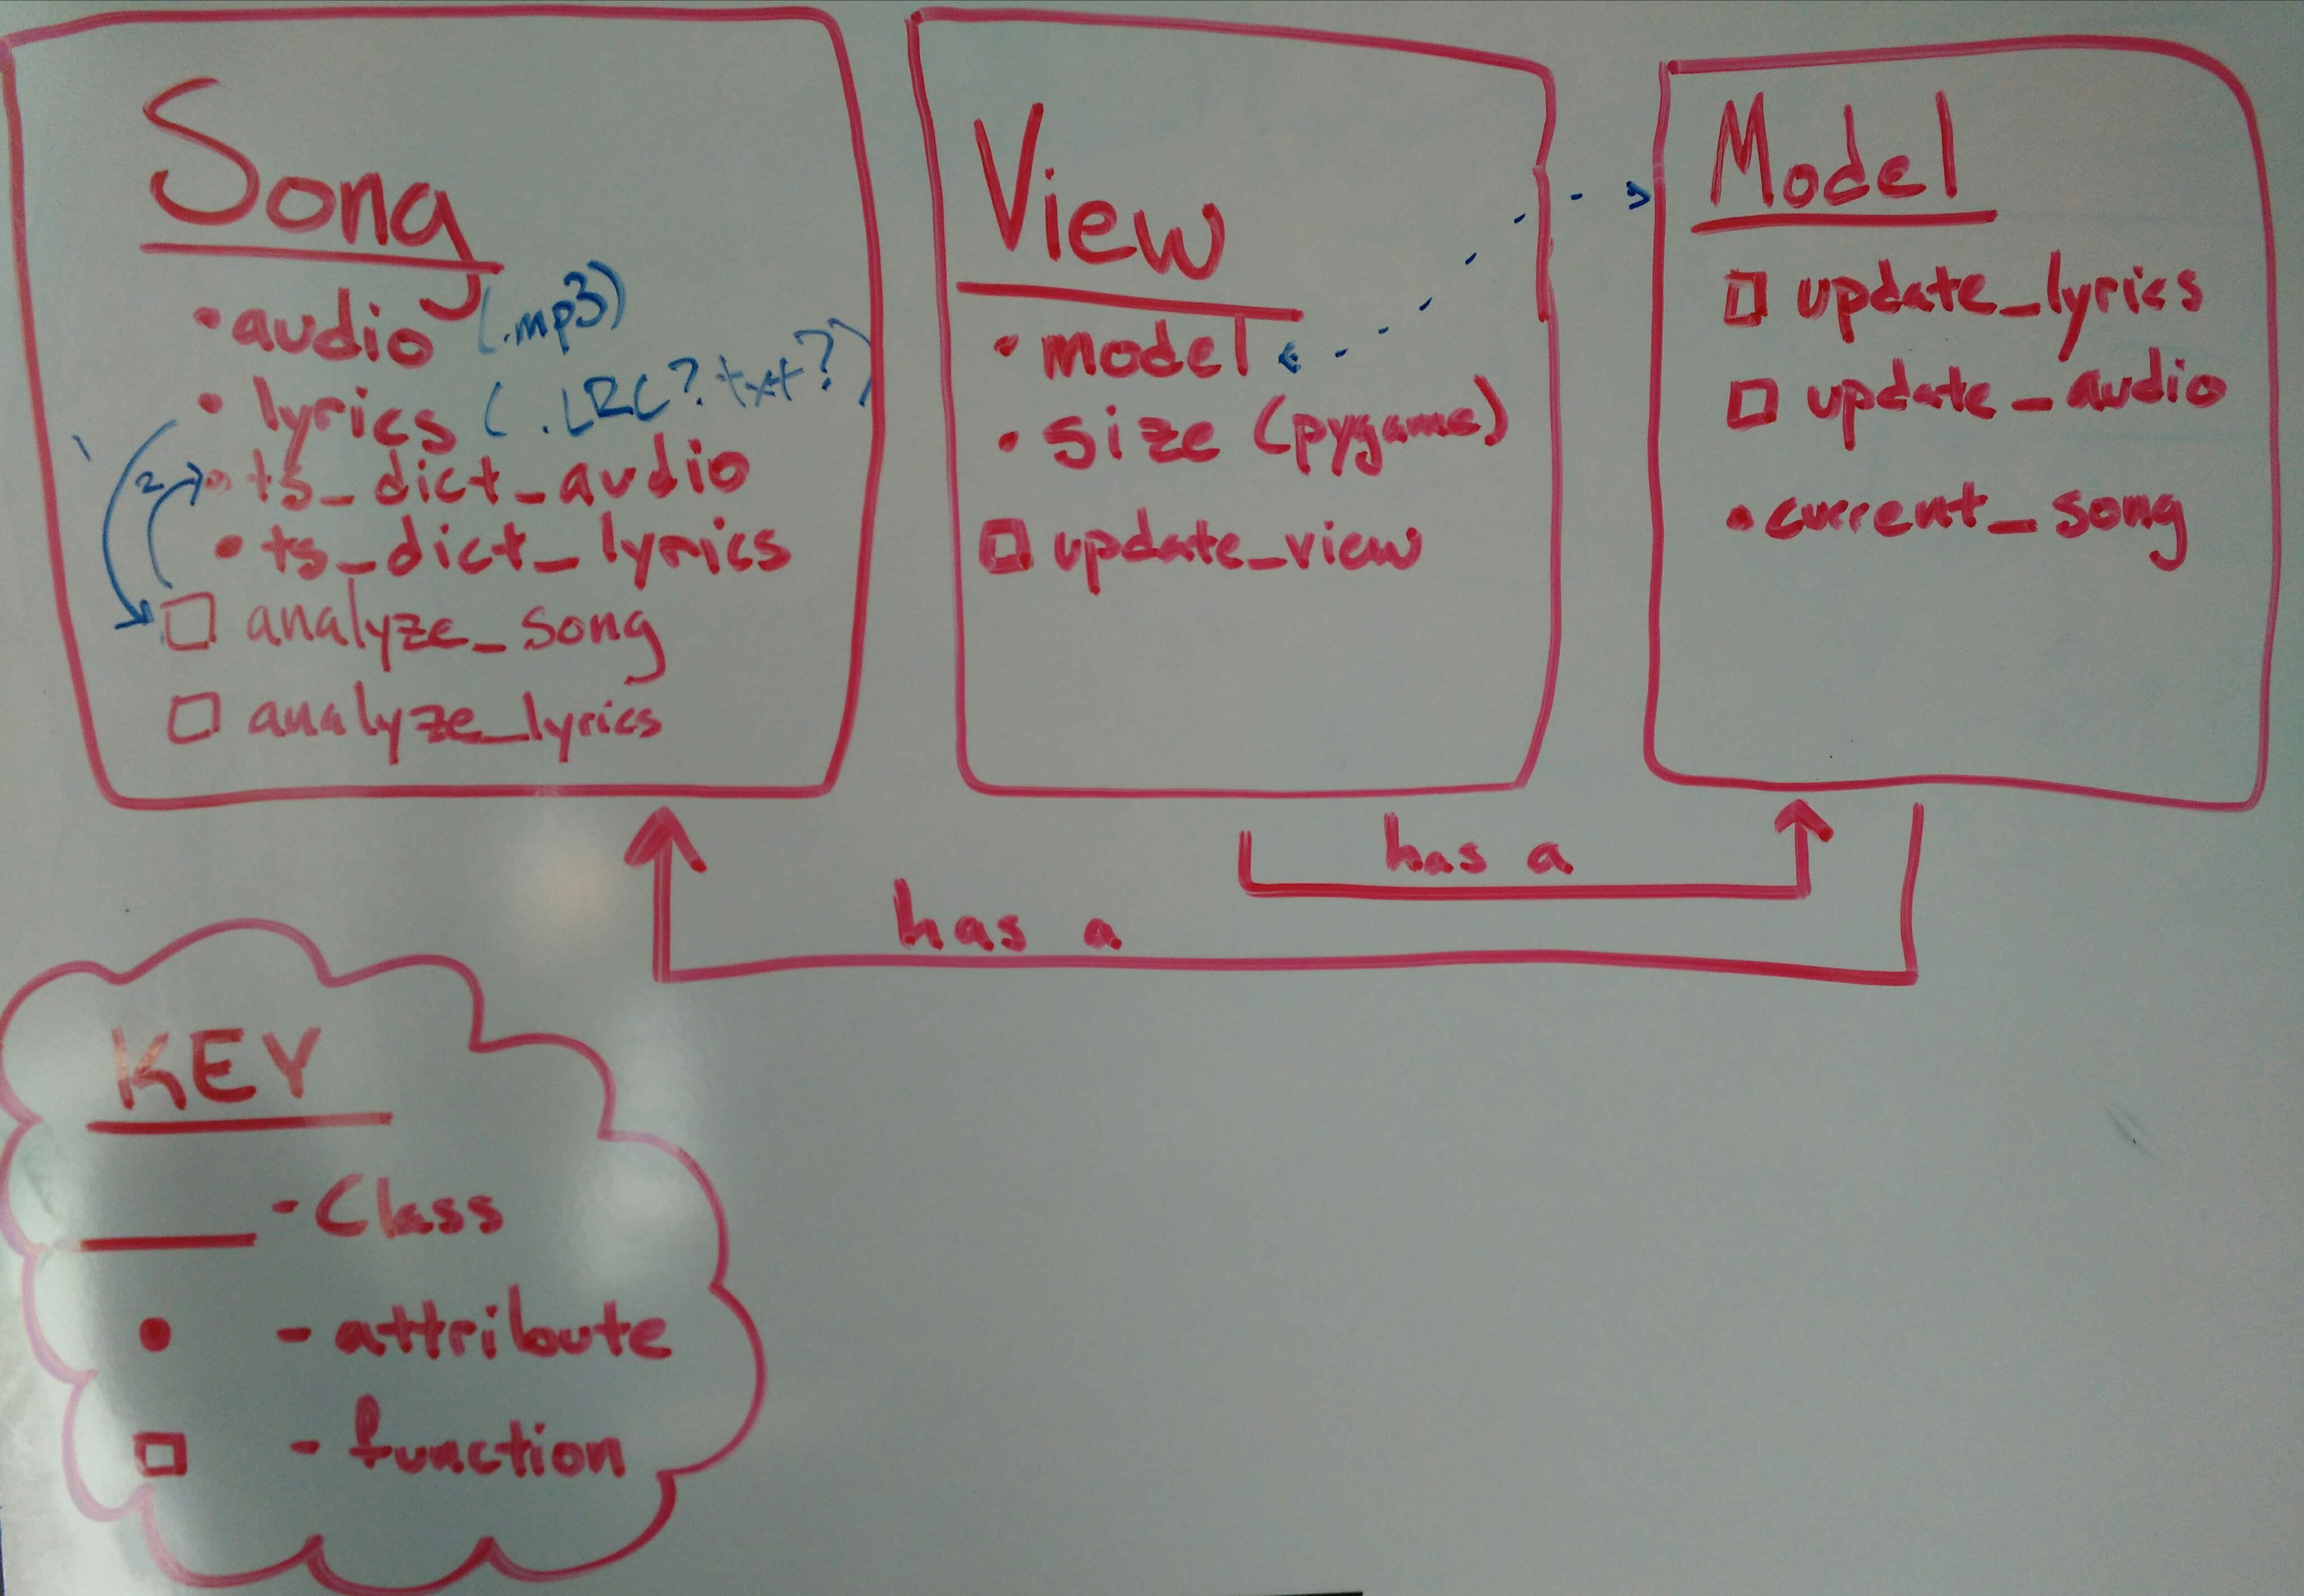 Song
• audio (.mp3)
• lyrics (.LRC? .txt?)
1
2
• ts_dict_audio
• ts_dict_lyrics
□ analyze_song
□ analyze_lyrics
View
• model
• size (pygame)
□ update_view
Model
□ update_lyrics
□ update_audio
• current_song
has a
has a
KEY
___ - Class
• - attribute
□ - function